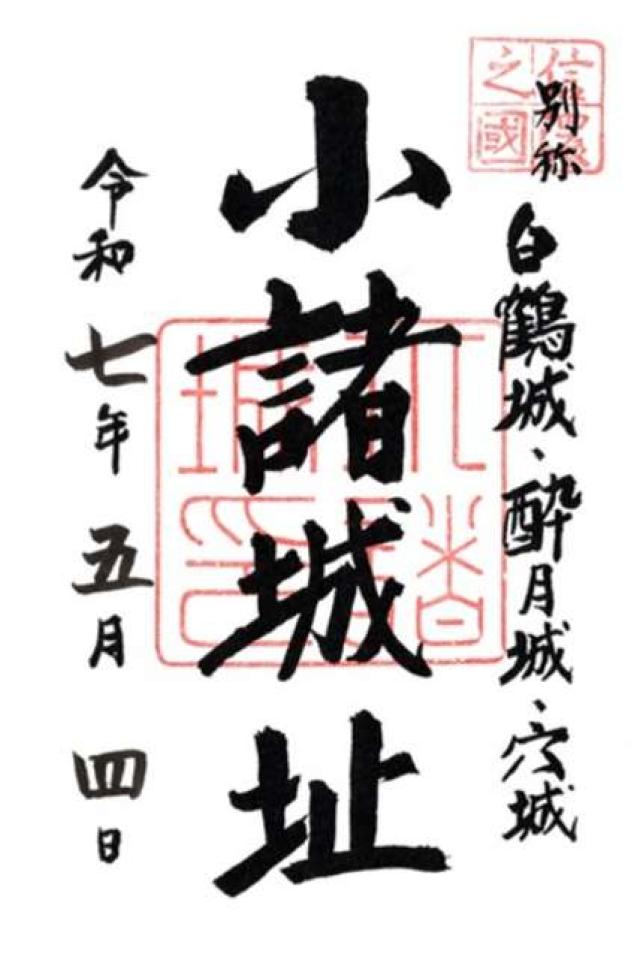 信濃
之國
別称 白鶴城、酔月城、穴城
小諸城址
令和七年五月四日